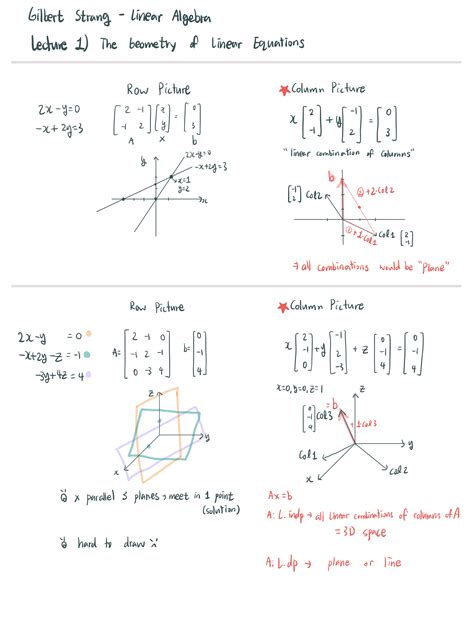 Gilbert Strang - Linear Algebra
Lecture 1) The Geometry of Linear Equations
Row Picture
2x-y=0
-x+2y=3
[2 -1
-1 2] [x
y] = [0
3]
A x b
y
2x-y=0
-x+2y=3
x=1
y=2
x
★Column Picture
x[2
-1] + y[-1
2] = [0
3]
"linear combination of columns"
b
[-1
2] Col2
②+2·Col2
①+1·Col1
Col1 [2
-1]
→ all combinations would be "plane"
Row Picture
2x-y =0
-x+2y-z=-1
-3y+4z=4
A=[2 -1 0
-1 2 -1
0 -3 4]
b=[0
-1
4]
z
y
x
x parallel
planes → meet in 1 point
(solution)
hard to draw
★Column Picture
x[2
-1
0] + y[-1
2
-3] + z[0
-1
4] = [0
-1
4]
x=0, y=0, z=1
z
[0
-1
4] Col3
=b
+1·Col3
y
Col1
x
Col2
Ax=b
A: L.indp → all linear combinations of columns of A
= 3D space
A: L.dp → plane or line